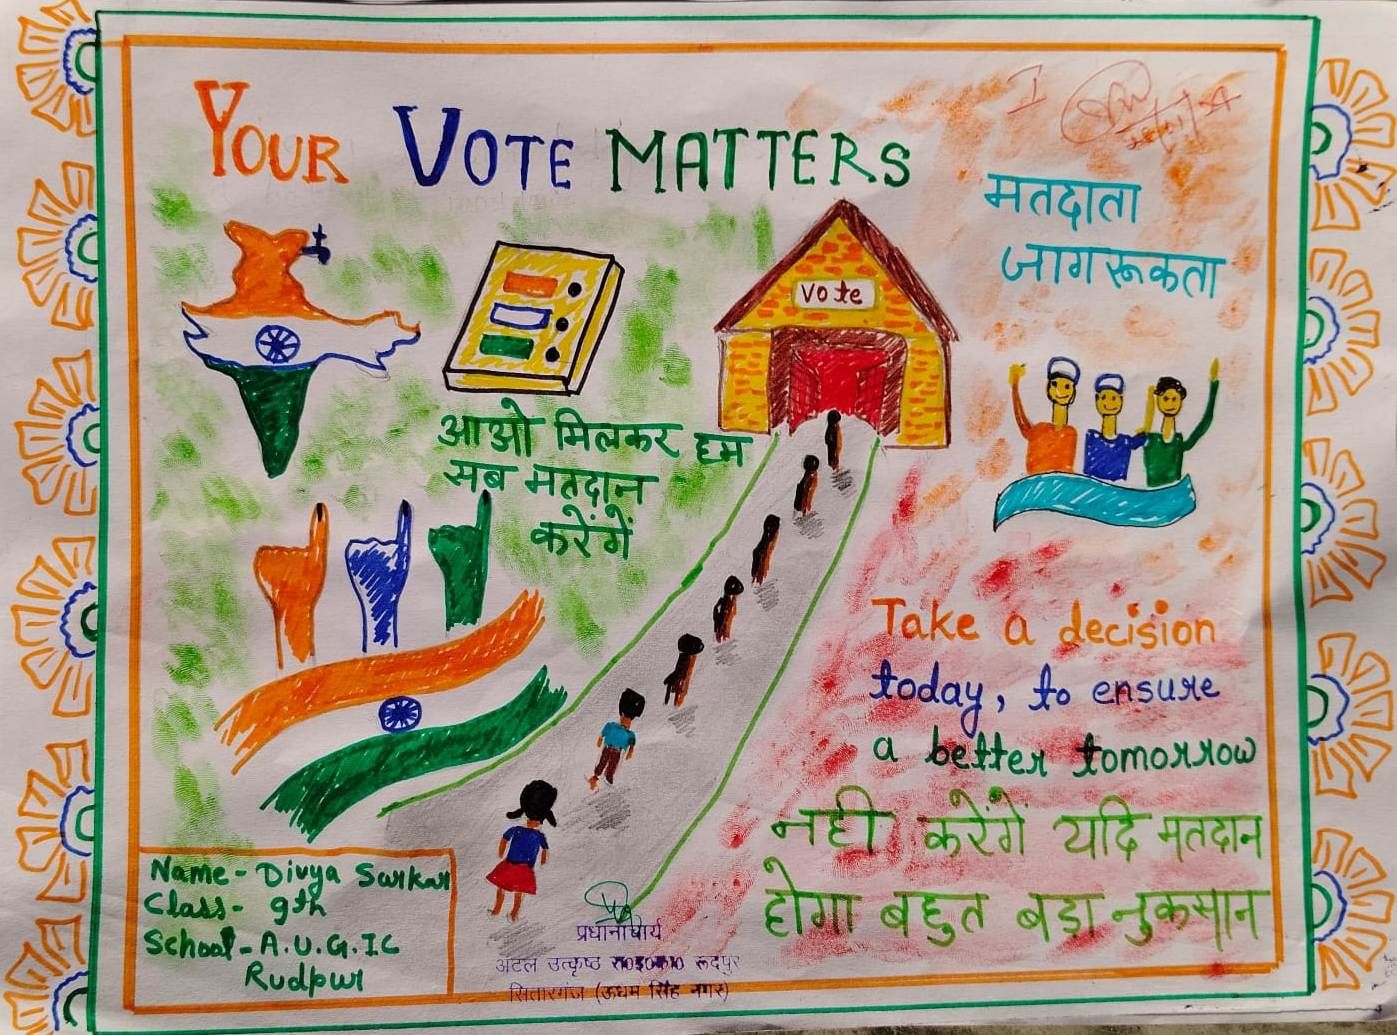 YOUR VOTE MATTERS
I
मतदाता
जागरूकता
vote
आओ मिलकर हम
सब मतदान
करेंगें
Take a decision
today, to ensure
a better tomorrow
नही करेंगें यदि मतदान
होगा बहुत बड़ा नुकसान
Name - Divya Sarkar
Class - 9th
School - A.U.G.IC
Rudpur
प्रधानाचार्य
अटल उत्कृष्ठ रा0इ0का0 रूदपुर
सितारगंज (ऊधम सिंह नगर)